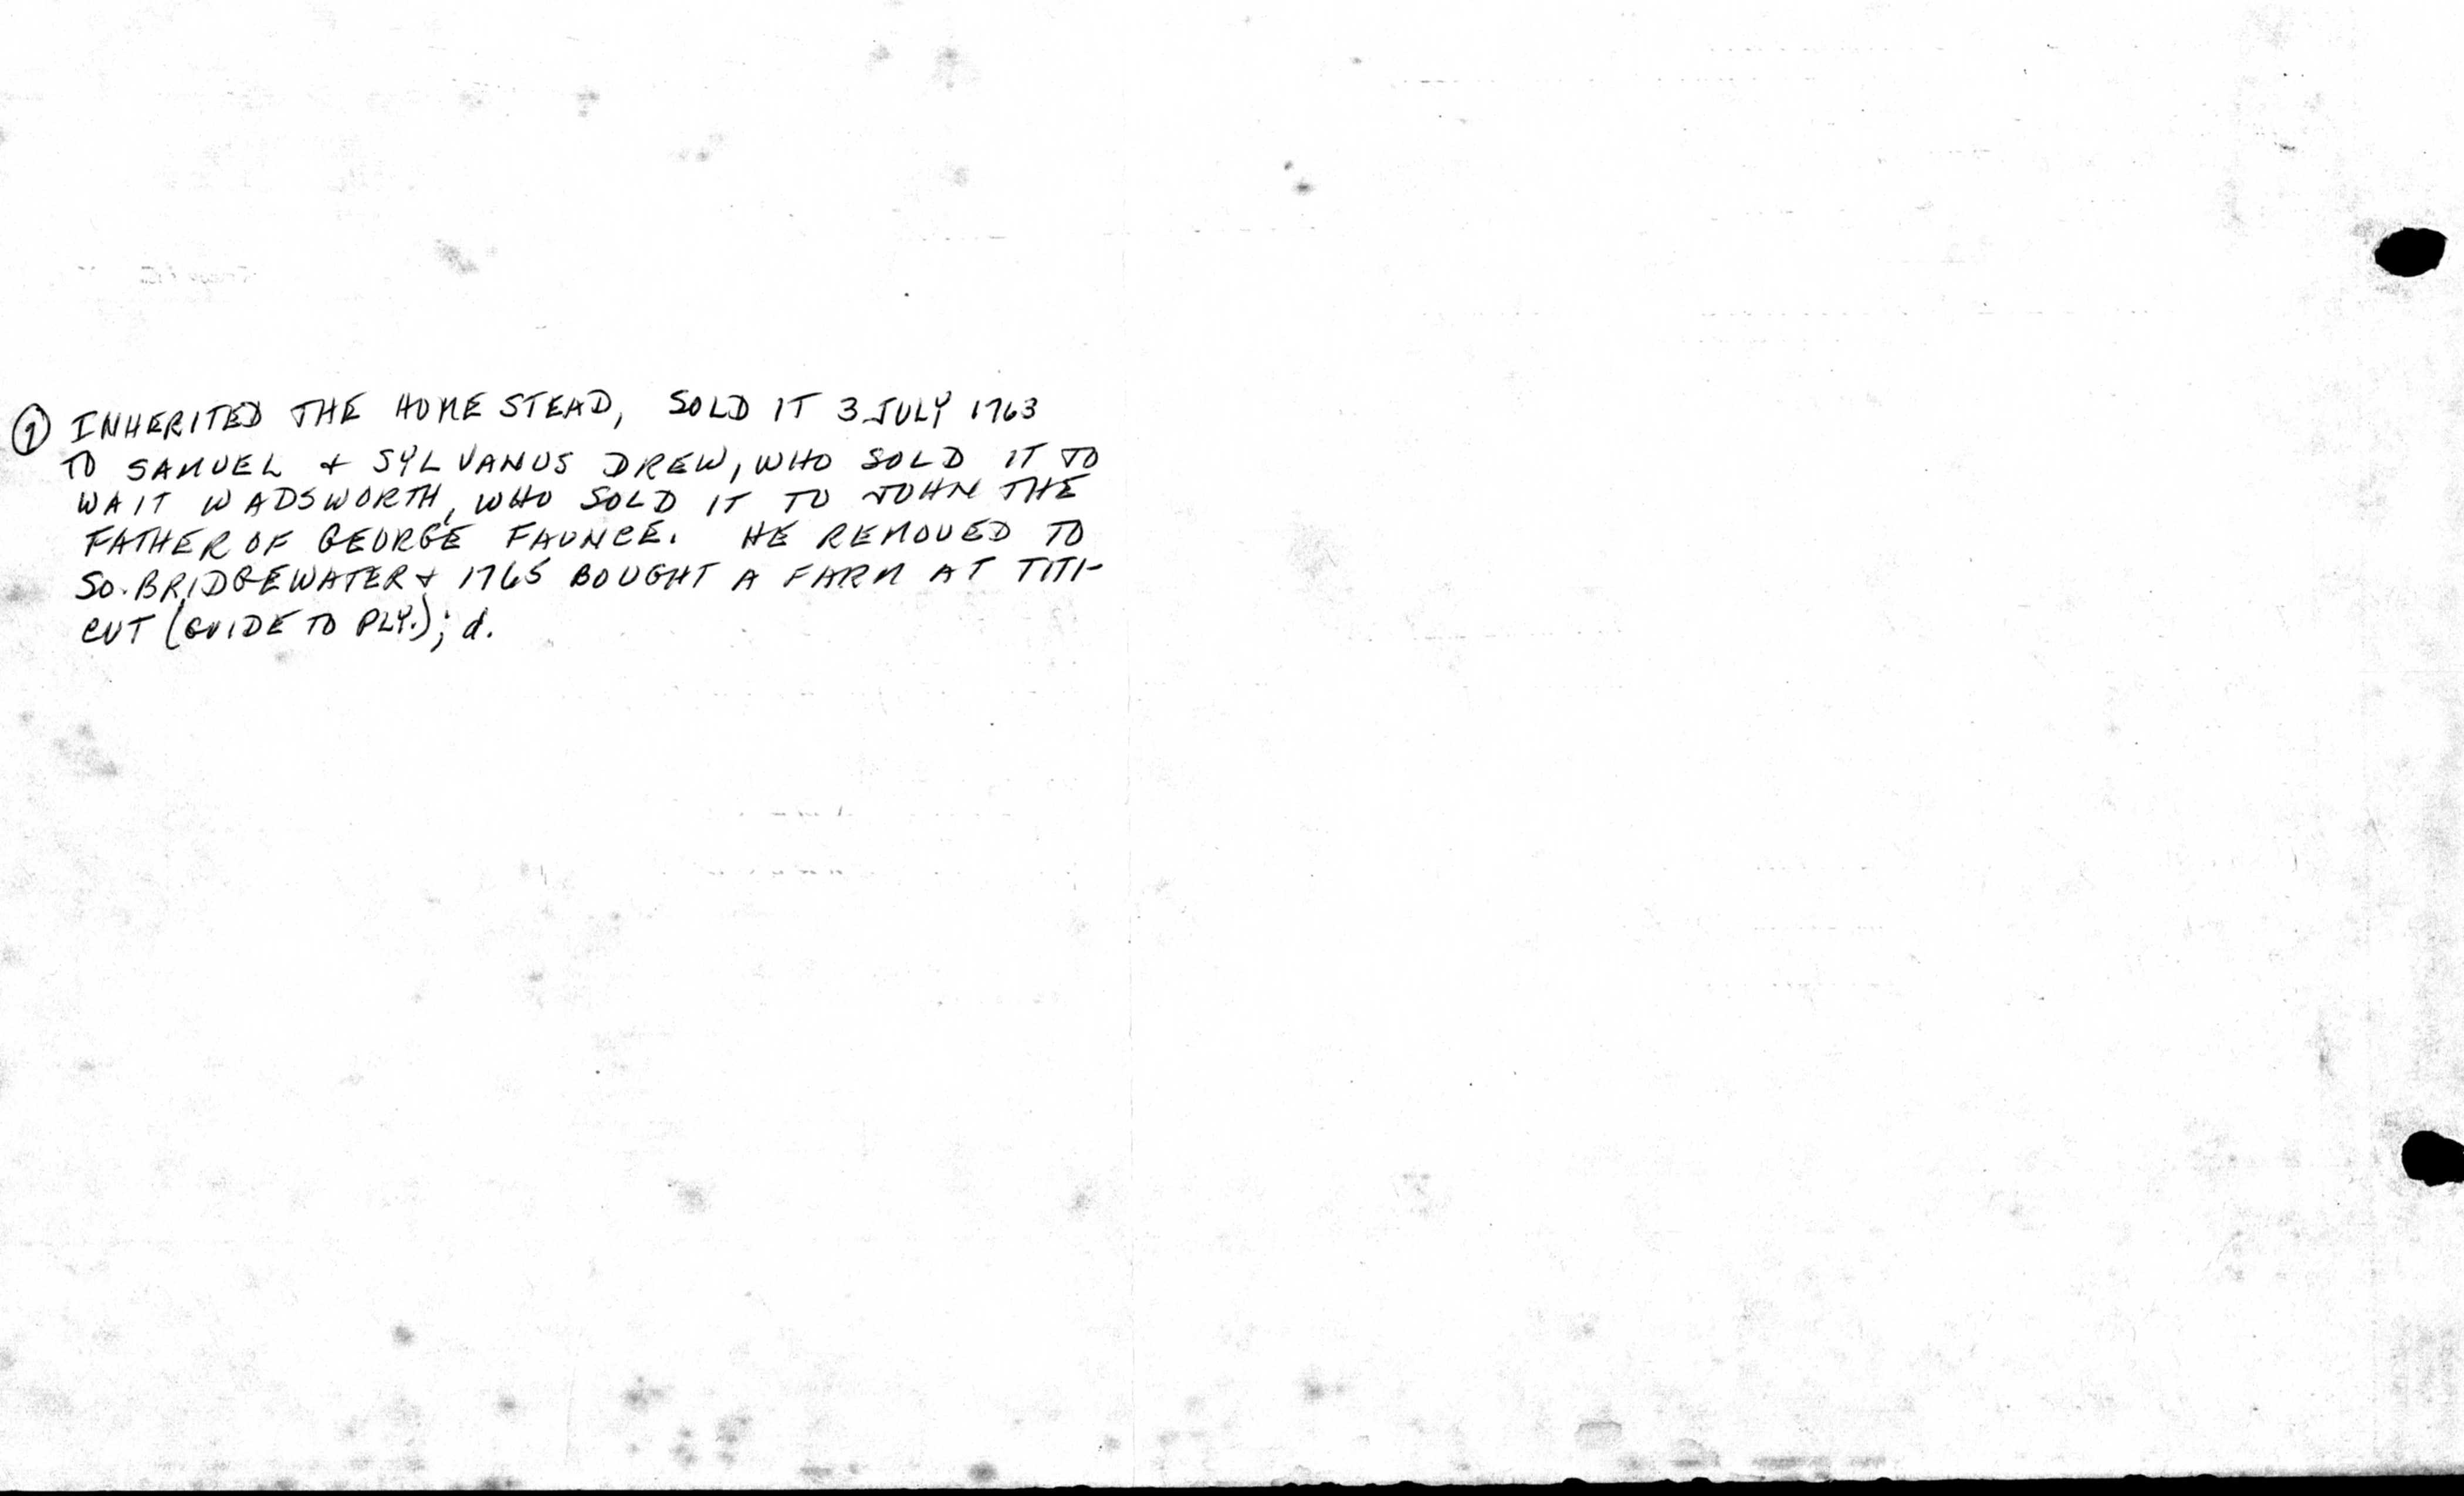 ① INHERITED THE HOMESTEAD, SOLD IT 3 JULY 1763
TO SAMUEL & SYLVANUS DREW, WHO SOLD IT TO
WAIT WADSWORTH, WHO SOLD IT TO JOHN THE
FATHER OF GEORGE FAUNCE. HE REMOVED TO
SO. BRIDGEWATER & 1765 BOUGHT A FARM AT TITI-
CUT (GUIDE TO PLY.); d.